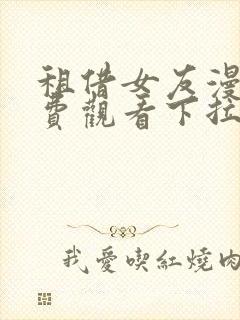 租借女友漫
費觀看下拉
我愛喫紅燒肉